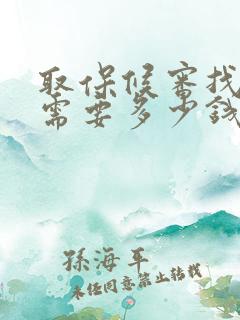 取保候审找
需要多少钱
孙海平
未经同意禁止转载